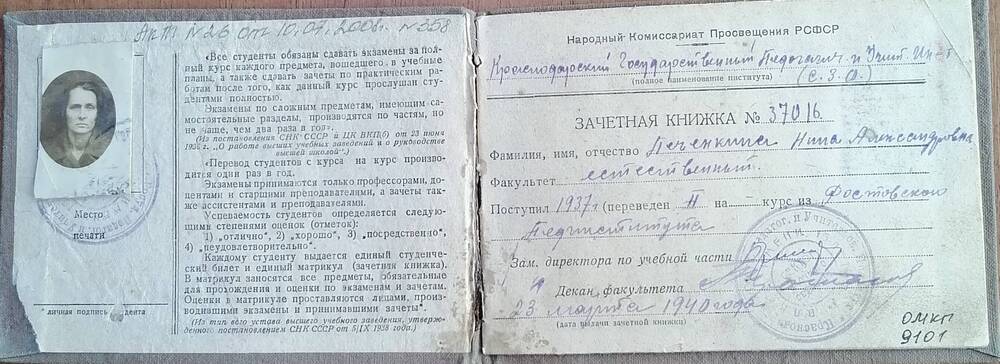 Акт №26 от 10.07.2006г. №358
„Все студенты обязаны сдавать экзамены за пол-
ный курс каждого предмета, вошедшего в учебные
планы, а также сдавать зачеты по практическим ра-
ботам после того, как данный курс прослушан сту-
дентами полностью.
Экзамены по сложным предметам, имеющим са-
мостоятельные разделы, производятся по частям, но
не чаще, чем два раза в год».
(Из постановления СНК СССР и ЦК ВКП(б) от 23 июня
1936 г. „О работе высших учебных заведений и о руководстве
высшей школой“.)
«Перевод студентов с курса на курс произво-
дится один раз в год.
Экзамены принимаются только профессорами, до-
центами и старшими преподавателями, а зачеты так-
же ассистентами и преподавателями.
Успеваемость студентов определяется следую-
щими степенями оценок (отметок):
1) „отлично“, 2) „хорошо“, 3) „посредственно“,
4) „неудовлетворительно“.
Каждому студенту выдается единый студенче-
ский билет и единый матрикул (зачетная книжка).
В матрикул заносятся все предметы, обязательные
для прохождения и оценки по экзаменам и зачетам.
Оценки в матрикуле проставляются лицами, произ-
водившими экзамены и принимавшими зачеты".
(Из типового устава высшего учебного заведения, утверж-
денного постановлением СНК СССР от 5/IX 1938 года.)
Место
печати
* личная подпись студента
Народный Комиссариат Просвещения РСФСР
Краснодарский Государственный Педагогич. и Учит. Ин-т
(полное наименование института)
(с.з.о.)
ЗАЧЕТНАЯ КНИЖКА № 37016
Фамилия, имя, отчество Печенкина Нина Александровна
Факультет естественный.
Поступил 1937г (переведен II на – курс из Ростовского
Пединститута
Зам. директора по учебной части
Декан факультета
23 марта 1940 года
(дата выдачи зачетной книжки)
ОМКП
9101